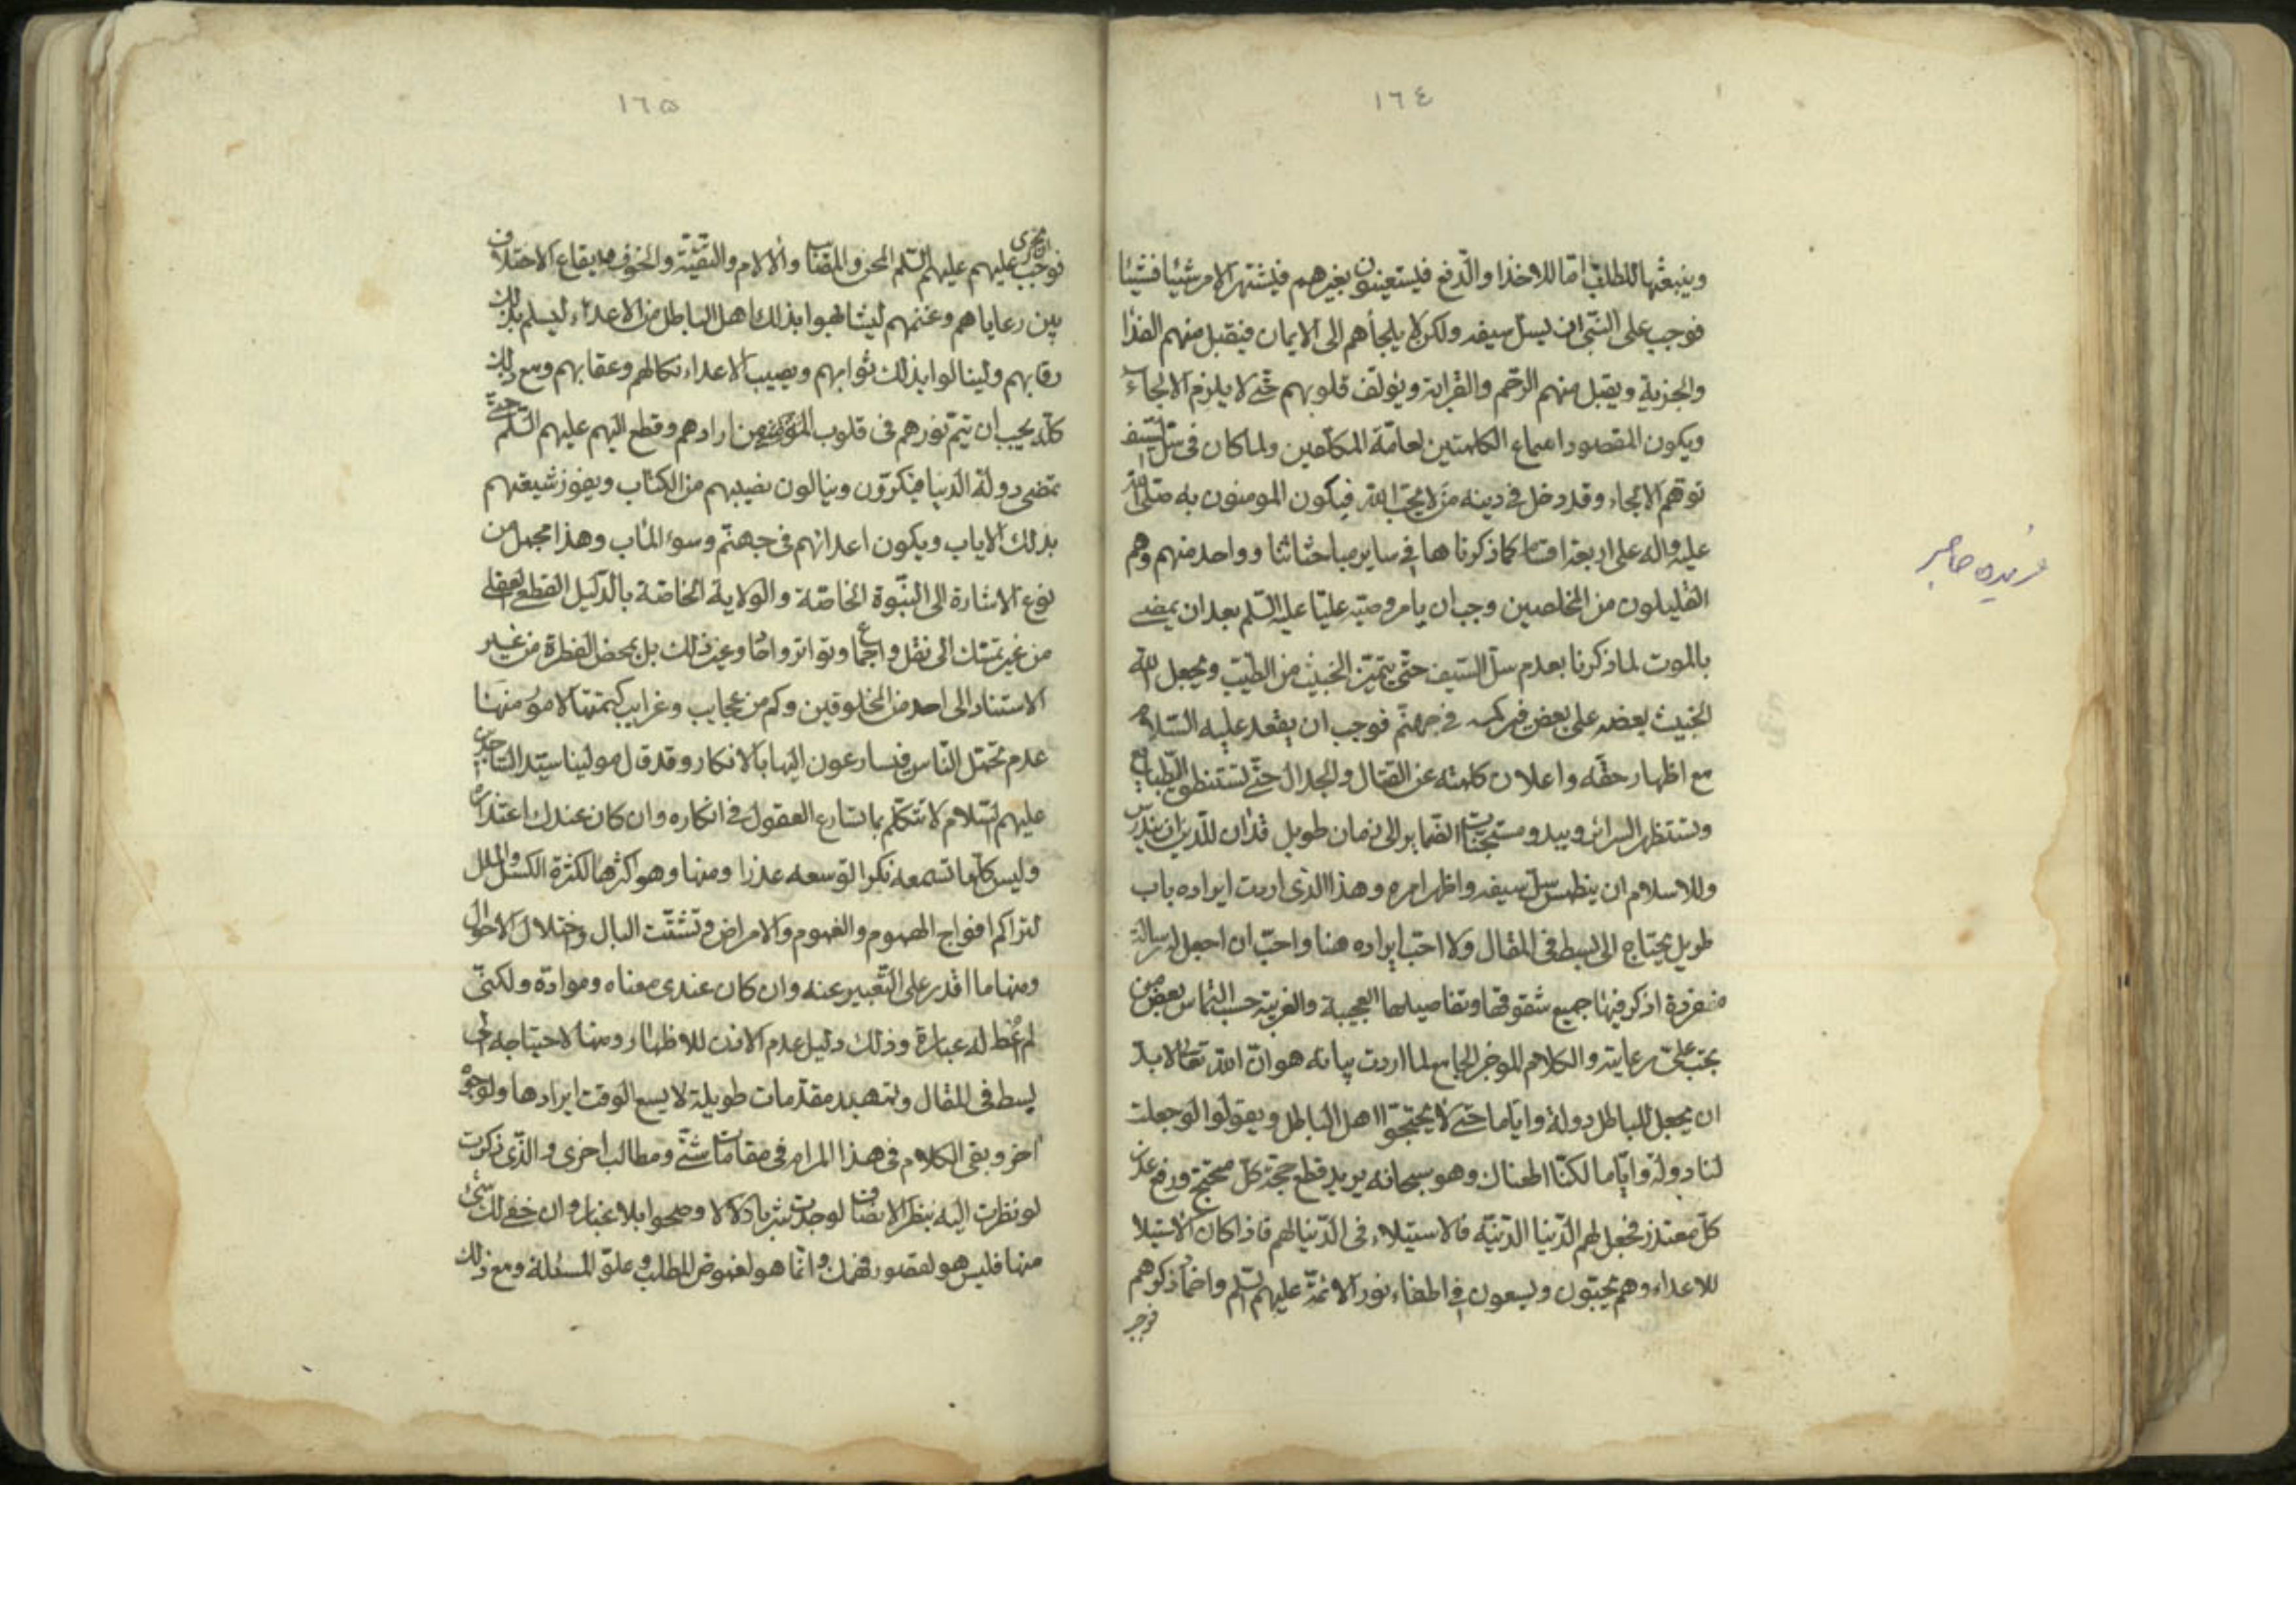 ١٦٤
وينبعثها للطلب اما للاخذ او الدفع فيستعينون بغيرهم فيشتهر الامر شيئا فشيئا
فوجب على النبي ان يسل سيفه ولكن لا يلجأهم الى الايمان فيقبل منهم الفدا
والجزية ويقبل منهم الرحم والقرابة ويؤلف قلوبهم حتى لا يلزم الالجاء
ويكون المقصود اسماع الكلمتين لعامة المكلفين ولما كان في سل السيف
توهم الالجاء وقد دخل في دينه من لا يحب الله فيكون المومنون به صلى الله
عليه واله على اربعة اقسام كما ذكرناها في ساير مباحثاتنا وواحد منهم وهم
القليلون من المخلصين وجب ان يامر وصيه عليا عليه السلم بعد ان يمضى
بالموت لما ذكرنا بعدم سل السيف حتى يتميز الخبيث من الطيب ويجعل الله
الخبيث بعضه على بعض فيركمه في جهنم فوجب ان يقعد عليه السلام
مع اظهار حقه واعلان كلمته عن القتال والجدال حتى تستنطق الطبايع
وتستنظر السرائر ويبدو مستجنات الضماير الى زمان طويل فان للدين ان يندرس
وللاسلام ان ينطمس سل سيفه واظهر امره وهذا الذي اردت ايراده باب
طويل يحتاج الى بسط في المقال ولا احب ايراده هنا واحب ان اجعل له رسالة
منفردة اذكر فيها جميع شقوقها وتفاصيلها العجيبة والغريبة حسب التماس بعض من
يجب على رعايته والكلام الموجز الجامع لما اردت بيانه هو ان الله تعالى لابد
ان يجعل للباطل دولة واياما حتى لا يحتجوا اهل الباطل ويقولوا لو جعلت
لنا دولة واياما لكنا اطعناك وهو سبحانه يريد قطع حجة كل محتج ورفع عذر
كل معتذر فجعل لهم الدنيا الدنية فالاستيلاء في الدنيا لهم فاذا كان الاستيلا
للاعداء وهم يحبون ويسعون في اطفاء نور الائمة عليهم السلم واخماد ذكرهم
فوجب
فريده صابر
١٦٥
فوجب ان يجري عليهم عليهم السلم المحن والمصائب والالام والتقية والخوف وايقاع الاختلاف
بين رعاياهم وغنمهم ليشابهوا بذلك اهل الباطل من الاعداء ليسلم بذلك
رقابهم ولينالوا بذلك ثوابهم ويصيب الاعداء نكالهم وعقابهم ومع ذلك
كله يجب ان يتم نورهم في قلوب المؤمنين من ارادهم وقطع اليهم عليهم السلم حتى
تمضى دولة الدنيا فيكرون وينالون نصيبهم من الكتاب ويفوز شيعتهم
بذلك الاياب ويكون اعدائهم في جهنم وسوء المآب وهذا مجمل من
نوع الاشارة الى النبوة الخاصة والولاية الخاصة بالدليل القطعي العقلي
من غير تمسك الى نقل واجماع وتواتر واحاد وغير ذلك بل بمحض الفطرة من غير
الاستناد الى احد من المخلوقين وكم من عجايب وغرايب كتمتها لامور منها
عدم تحمل الناس فيسارعون اليها بالانكار وقد قال مولينا سيد الساجدين
عليهم السلام لا تتكلم بما تسارع العقول في انكاره وان كان عندك اعتذاره
وليس كلما تسمعه نكرا توسعه عذرا ومنها وهو اكثرها لكثرة الكسل والملل
لتراكم افواج الهموم والغموم والامراض وتشتت البال واختلال الاحوال
ومنها ما اقدر على التعبير عنه وان كان عندي معناه وموادة ولكني
لم اعط له عبارة وذلك دليل عدم الاذن للاظهار ومنها لاحتياجه الى
بسط في المقال وتمهيد مقدمات طويلة لا يسع الوقت ايرادها ولوجوه
اخر وبقى الكلام في هذا المرام في مقامات شتى ومطالب اخرى والذي ذكرت
لو نظرت اليه بنظر الانصاف لوجدت شربا زلالا وصحوا بلا غبار وان خفى لك شئ
منها فليس هو لقصور فهمك وانما هو لغموض المطلب وعلو المسئلة ومع ذلك